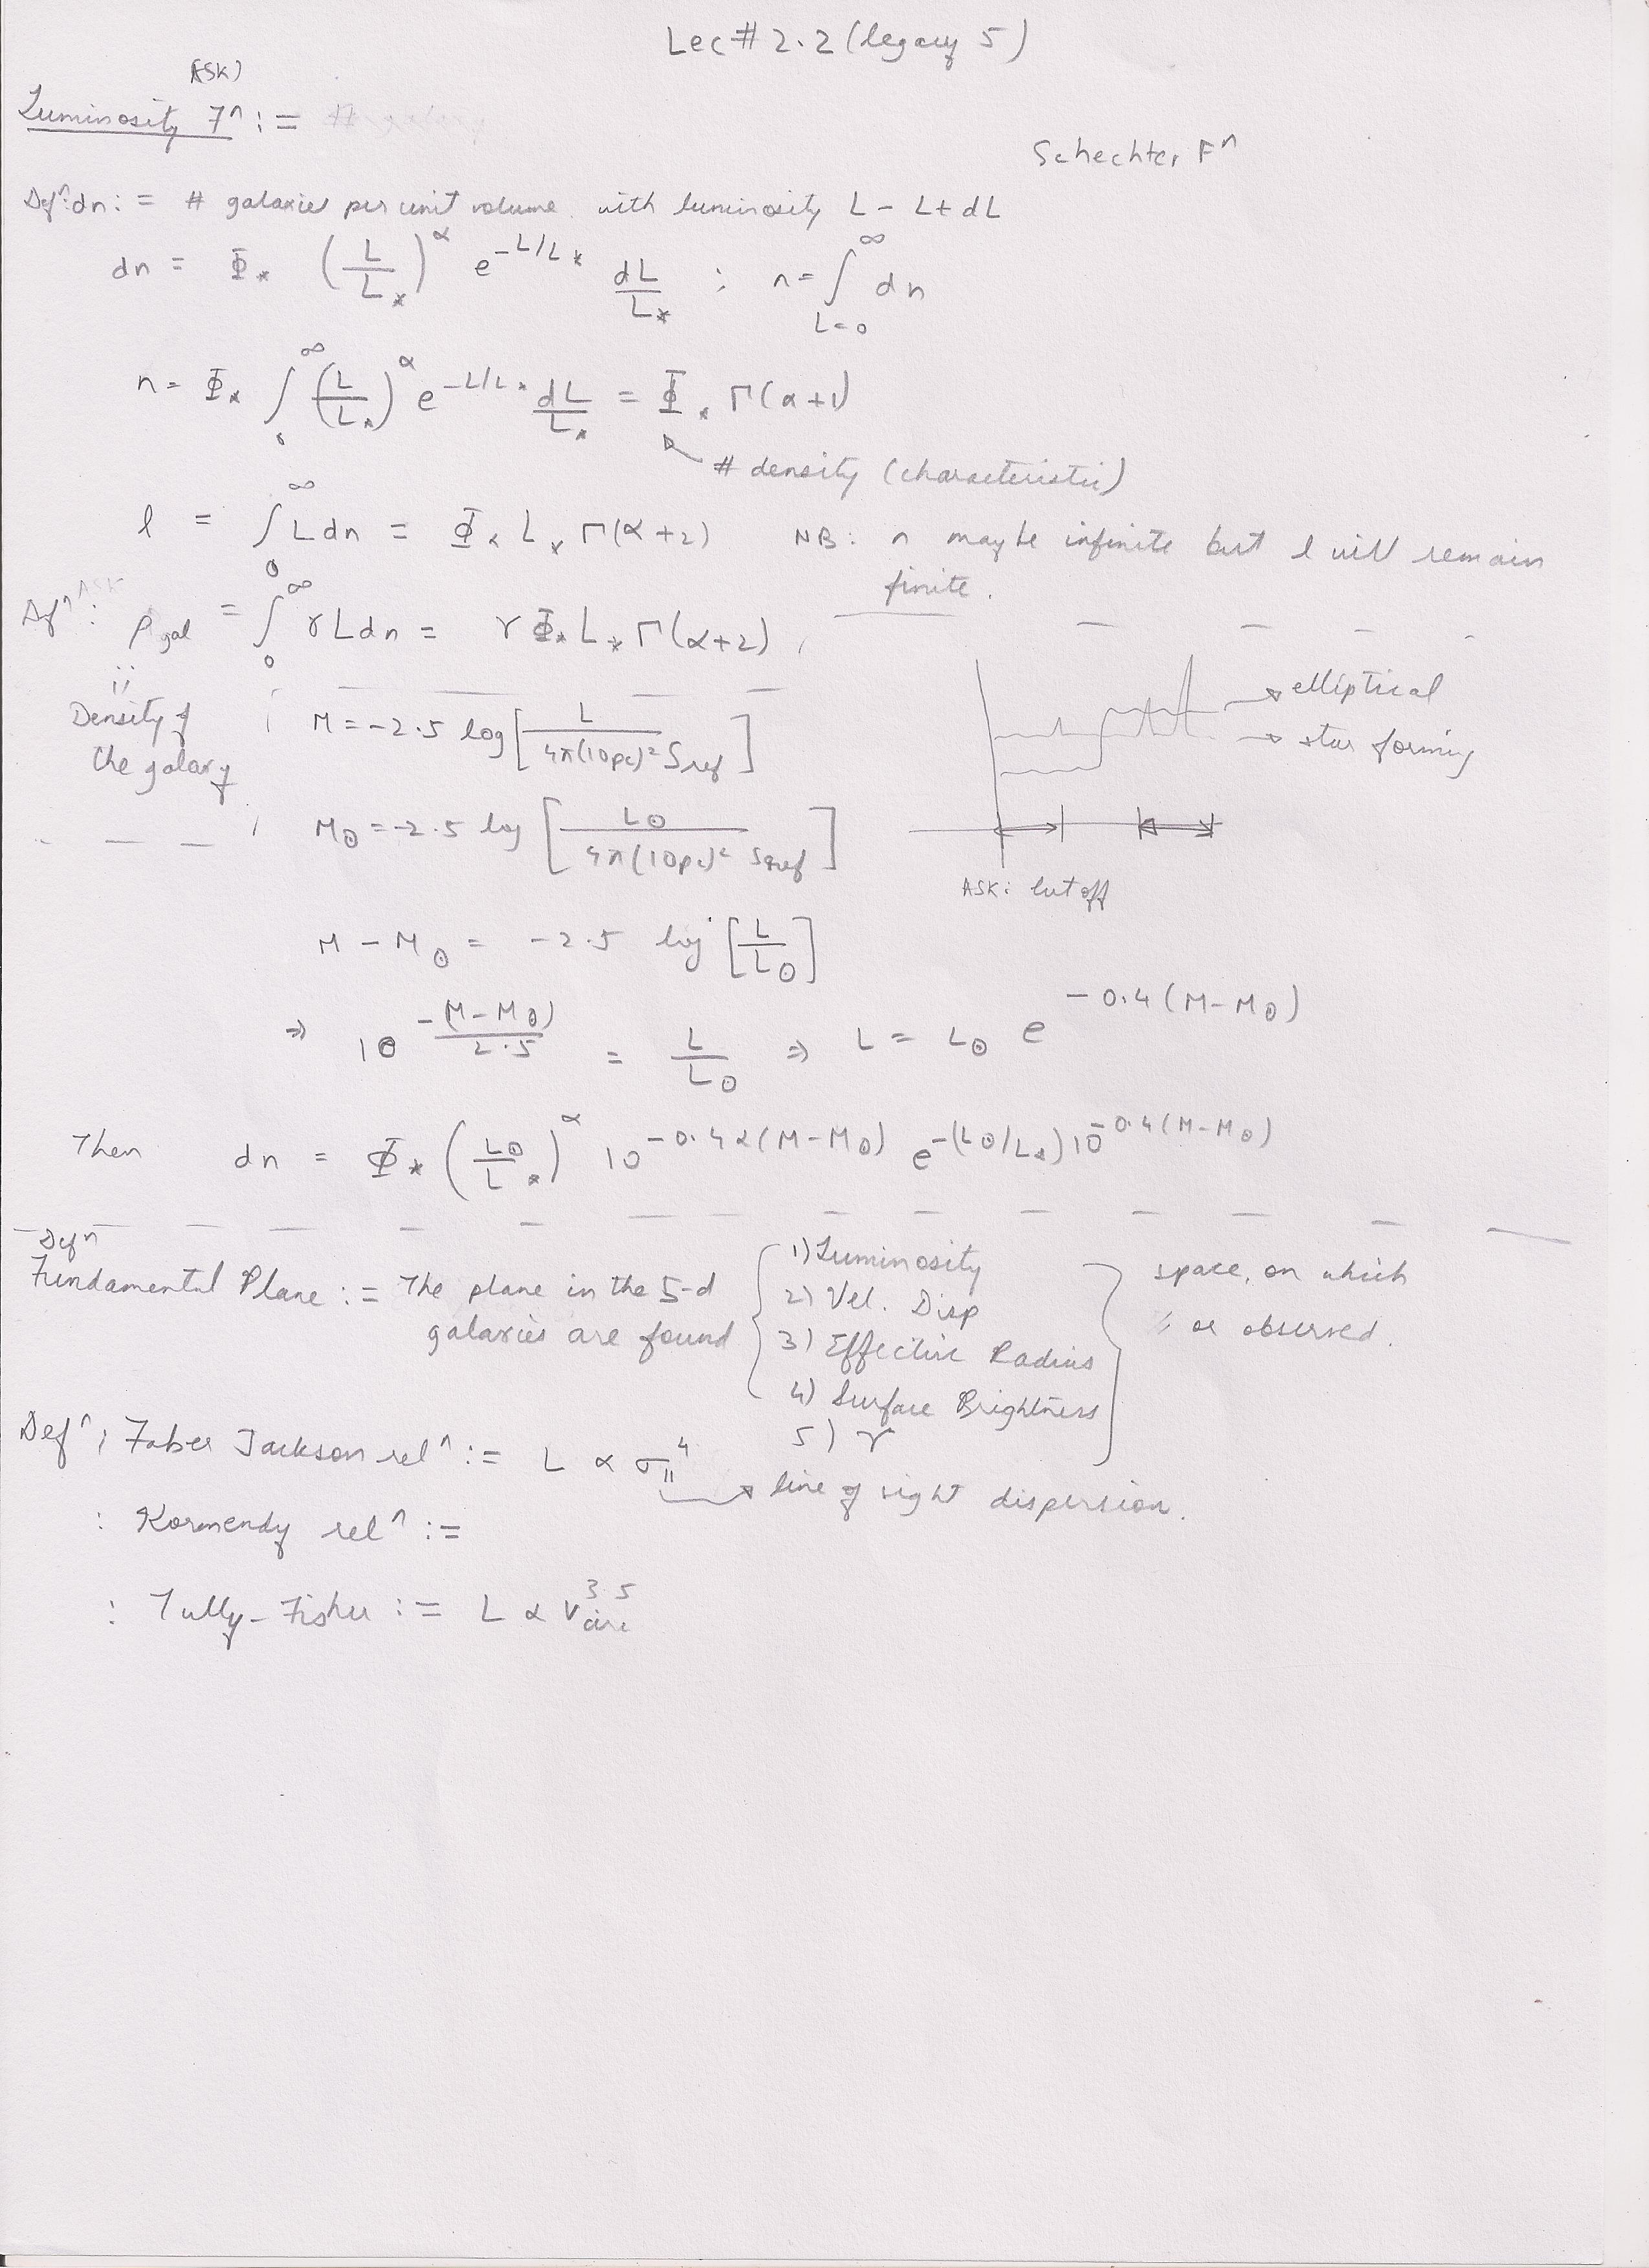 Lec # 2.2 (legacy 5)
(ASK)
Luminosity Fⁿ := # galaxy
Schechter Fⁿ
Defⁿ: dn := # galaxies per unit volume with luminosity L – L+dL
dn = Φ* (L/L*)^α e^{-L/L*} dL/L* ; n = ∫_{L=0}^{∞} dn
n = Φ* ∫_0^∞ (L/L*)^α e^{-L/L*} dL/L* = Φ* Γ(α+1)
# density (characteristic)
l = ∫_0^∞ L dn = Φ* L* Γ(α+2) NB: n may be infinite but l will remain
finite.
ASK
Defⁿ: ρ_gal = ∫_0^∞ γ L dn = γ Φ* L* Γ(α+2)
Density of
the galaxy
M = -2.5 log [L / 4π(10pc)² S_ref]
elliptical
star forming
M⊙ = -2.5 log [L⊙ / 4π(10pc)² S_ref]
ASK: cutoff
M – M⊙ = -2.5 log [L/L⊙]
⇒ 10^{-(M-M⊙)/2.5} = L/L⊙ ⇒ L = L⊙ e^{-0.4(M-M⊙)}
Then dn = Φ* (L⊙/L*)^α 10^{-0.4α(M-M⊙)} e^{-(L⊙/L*)10^{-0.4(M-M⊙)}}
Defⁿ
Fundamental Plane := The plane in the 5-d { 1) Luminosity 2) Vel. Disp 3) Effective Radius 4) Surface Brightness 5) γ } space, on which
galaxies are found or observed.
Defⁿ: Faber Jackson relⁿ := L ∝ σ_{||}^4 → line of sight dispersion.
: Kormendy relⁿ :=
: Tully-Fisher := L ∝ V_circ^{3.5}